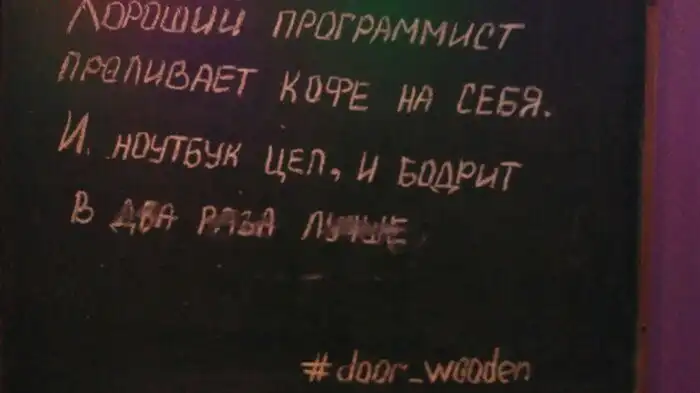 Хороший программист
проливает кофе на себя.
И ноутбук цел, и бодрит
в два раза лучше
#door_wooden